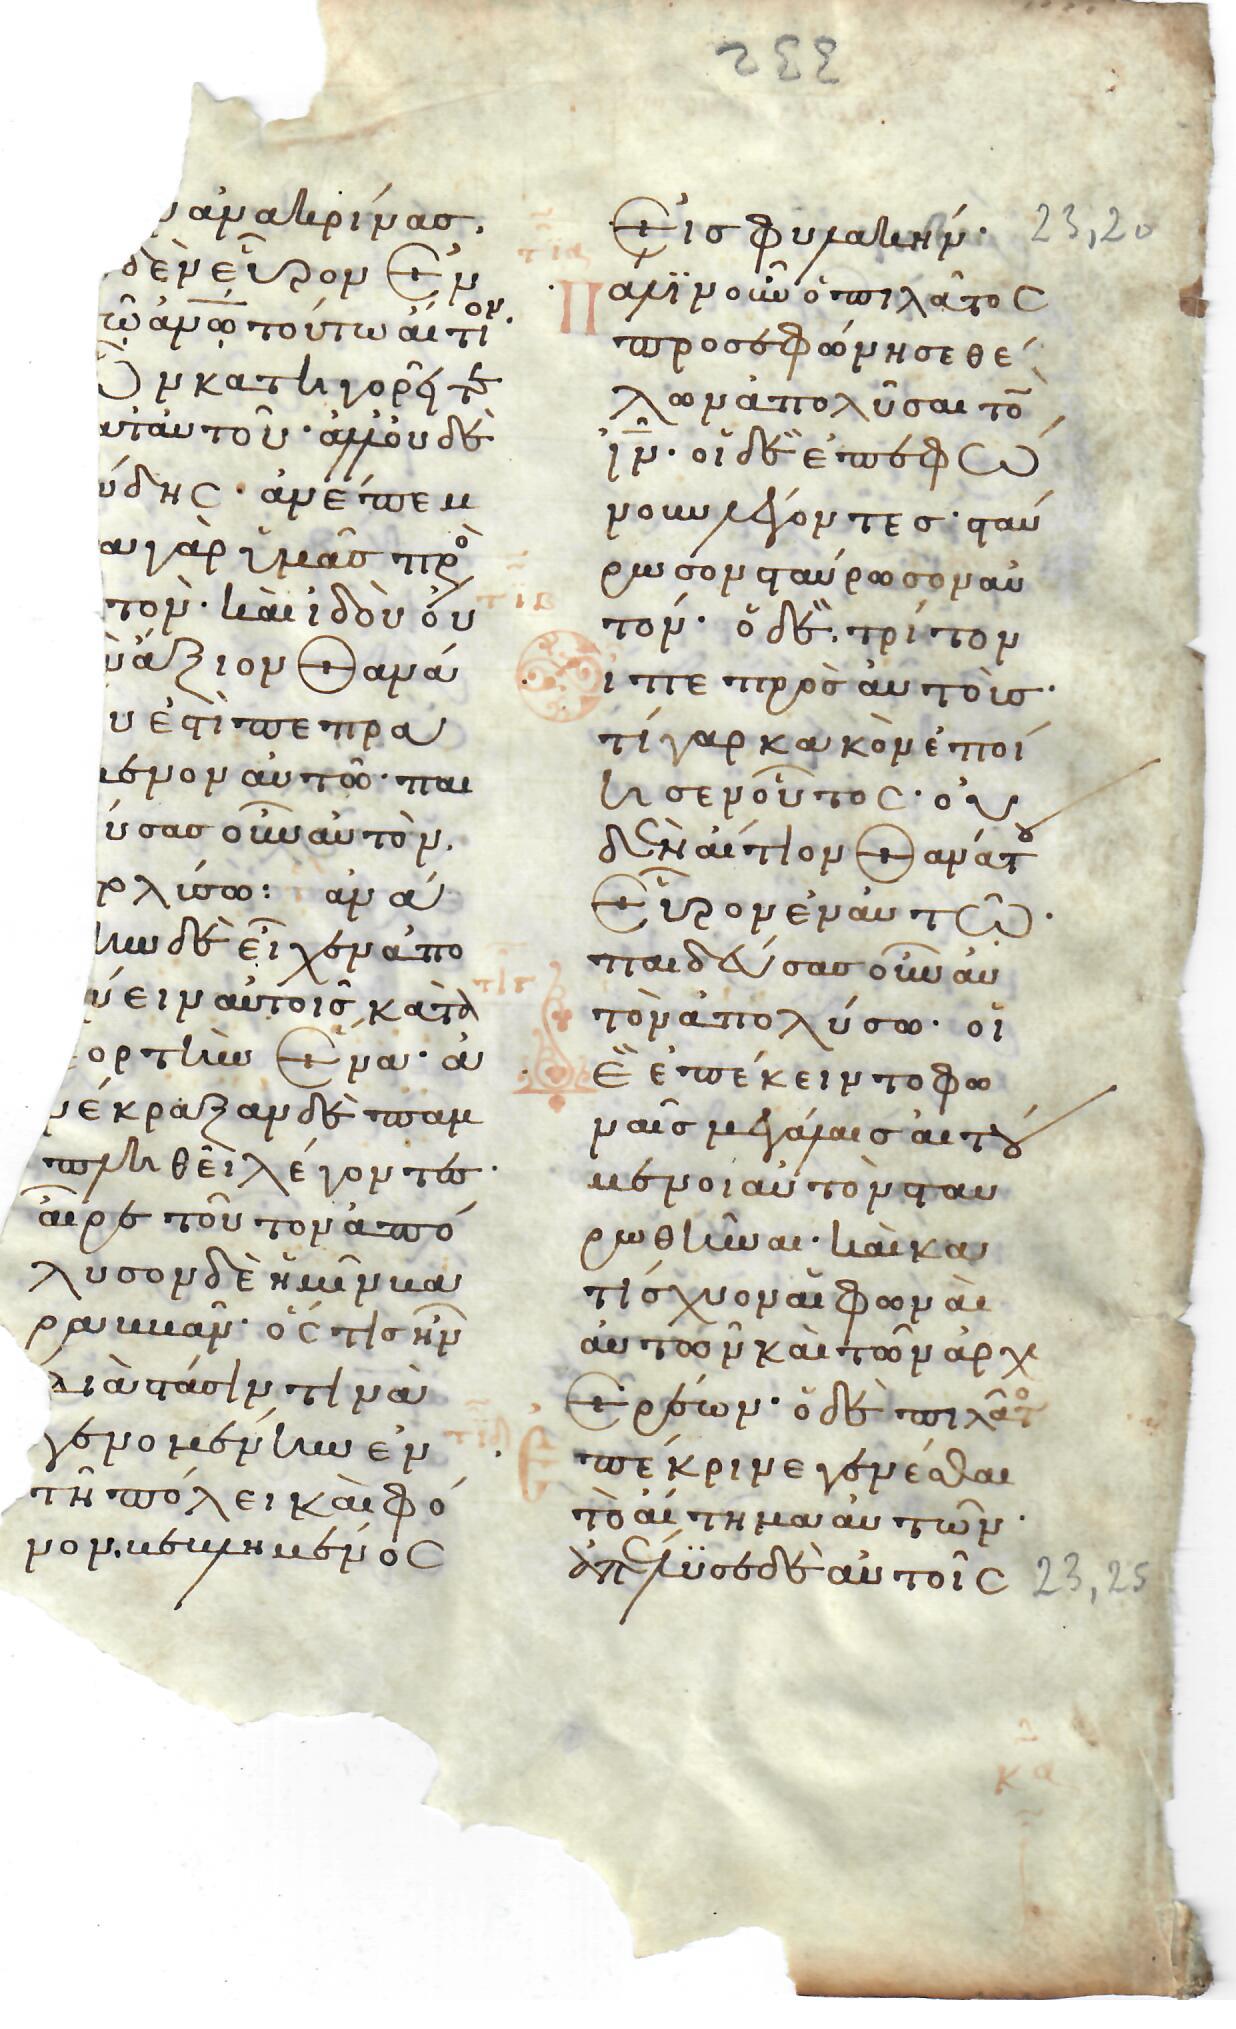 ἀνακρίνας.
δὲν εὗρον ἐν
τῶ ἀνω̅ τούτω αἴτιον.
ὧν κατηγορεῖτε
κατ' αὐτοῦ· ἀλλ' οὐδὲ
ώδης· ἀνέπεμ
α γὰρ ὑμᾶς πρὸ
τὸν· καὶ ἰδοὺ οὐ
ν ἄξιον θανά
υ ἐστὶ πεπρα
μενον αὐτῶ· παι
ύσας οὖν αὐτὸν.
ολύσω: ἀνά
κην δὲ εἶχεν ἀπο
ύειν αὐτοῖς κατὰ
ορτὴν ἕνα· ἀ
νέκραξαν δὲ παμ
πληθεὶ λέγοντες·
αἶρε τοῦτον ἀπό
λυσον δὲ ἡμῖν βα
ραββᾶν· ὅς τις ἦν
διὰ στάσιν τινὰ
γενομένην ἐν
τῆ πόλει καὶ φό
νον. βεβλημένος
εἰς φυλακήν·
Πάλιν οὖν ὁ πιλᾶτος
προσεφώνησε θέ
λων ἀπολῦσαι τὸ
ι̅ν̅· οἱ δὲ ἐπεφώ
νουν λέγοντες· σταύ
ρωσον σταύρωσον αὐ
τόν· ὁ δὲ τρίτον
εἶπε πρὸς αὐτοὺς·
τί γαρ κακὸν ἐποί
ησεν οὗτος· οὐ
δὲν αἴτιον θανάτου
εὗρον ἐν αὐτῶ·
παιδεύσας οὖν αὐ
τὸν ἀπολύσω· οἱ
δὲ ἐπέκειντο φω
ναῖς μεγάλαις αἰτού
μενοι αὐτὸν σταυ
ρωθῆναι· καὶ κα
τίσχυον αἱ φωναὶ
αὐτῶν καὶ τῶν ἀρχ
ιερέων· ὁ δὲ πιλᾶτο
ἐπέκρινε γενέσθαι
τὸ αἴτημα αὐτῶν·
ἀπέλυσε δὲ αὐτοῖς
23,20
23,25